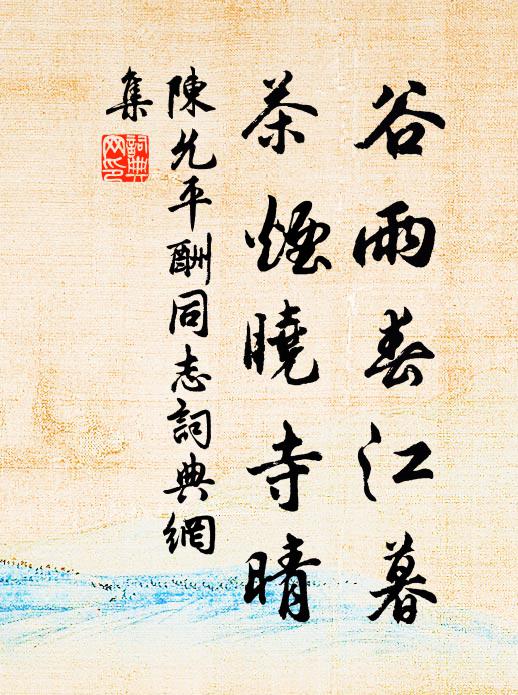 谷雨春江暮
茶煙曉寺晴
陳允平酬同志詞典網
集
詞典網印